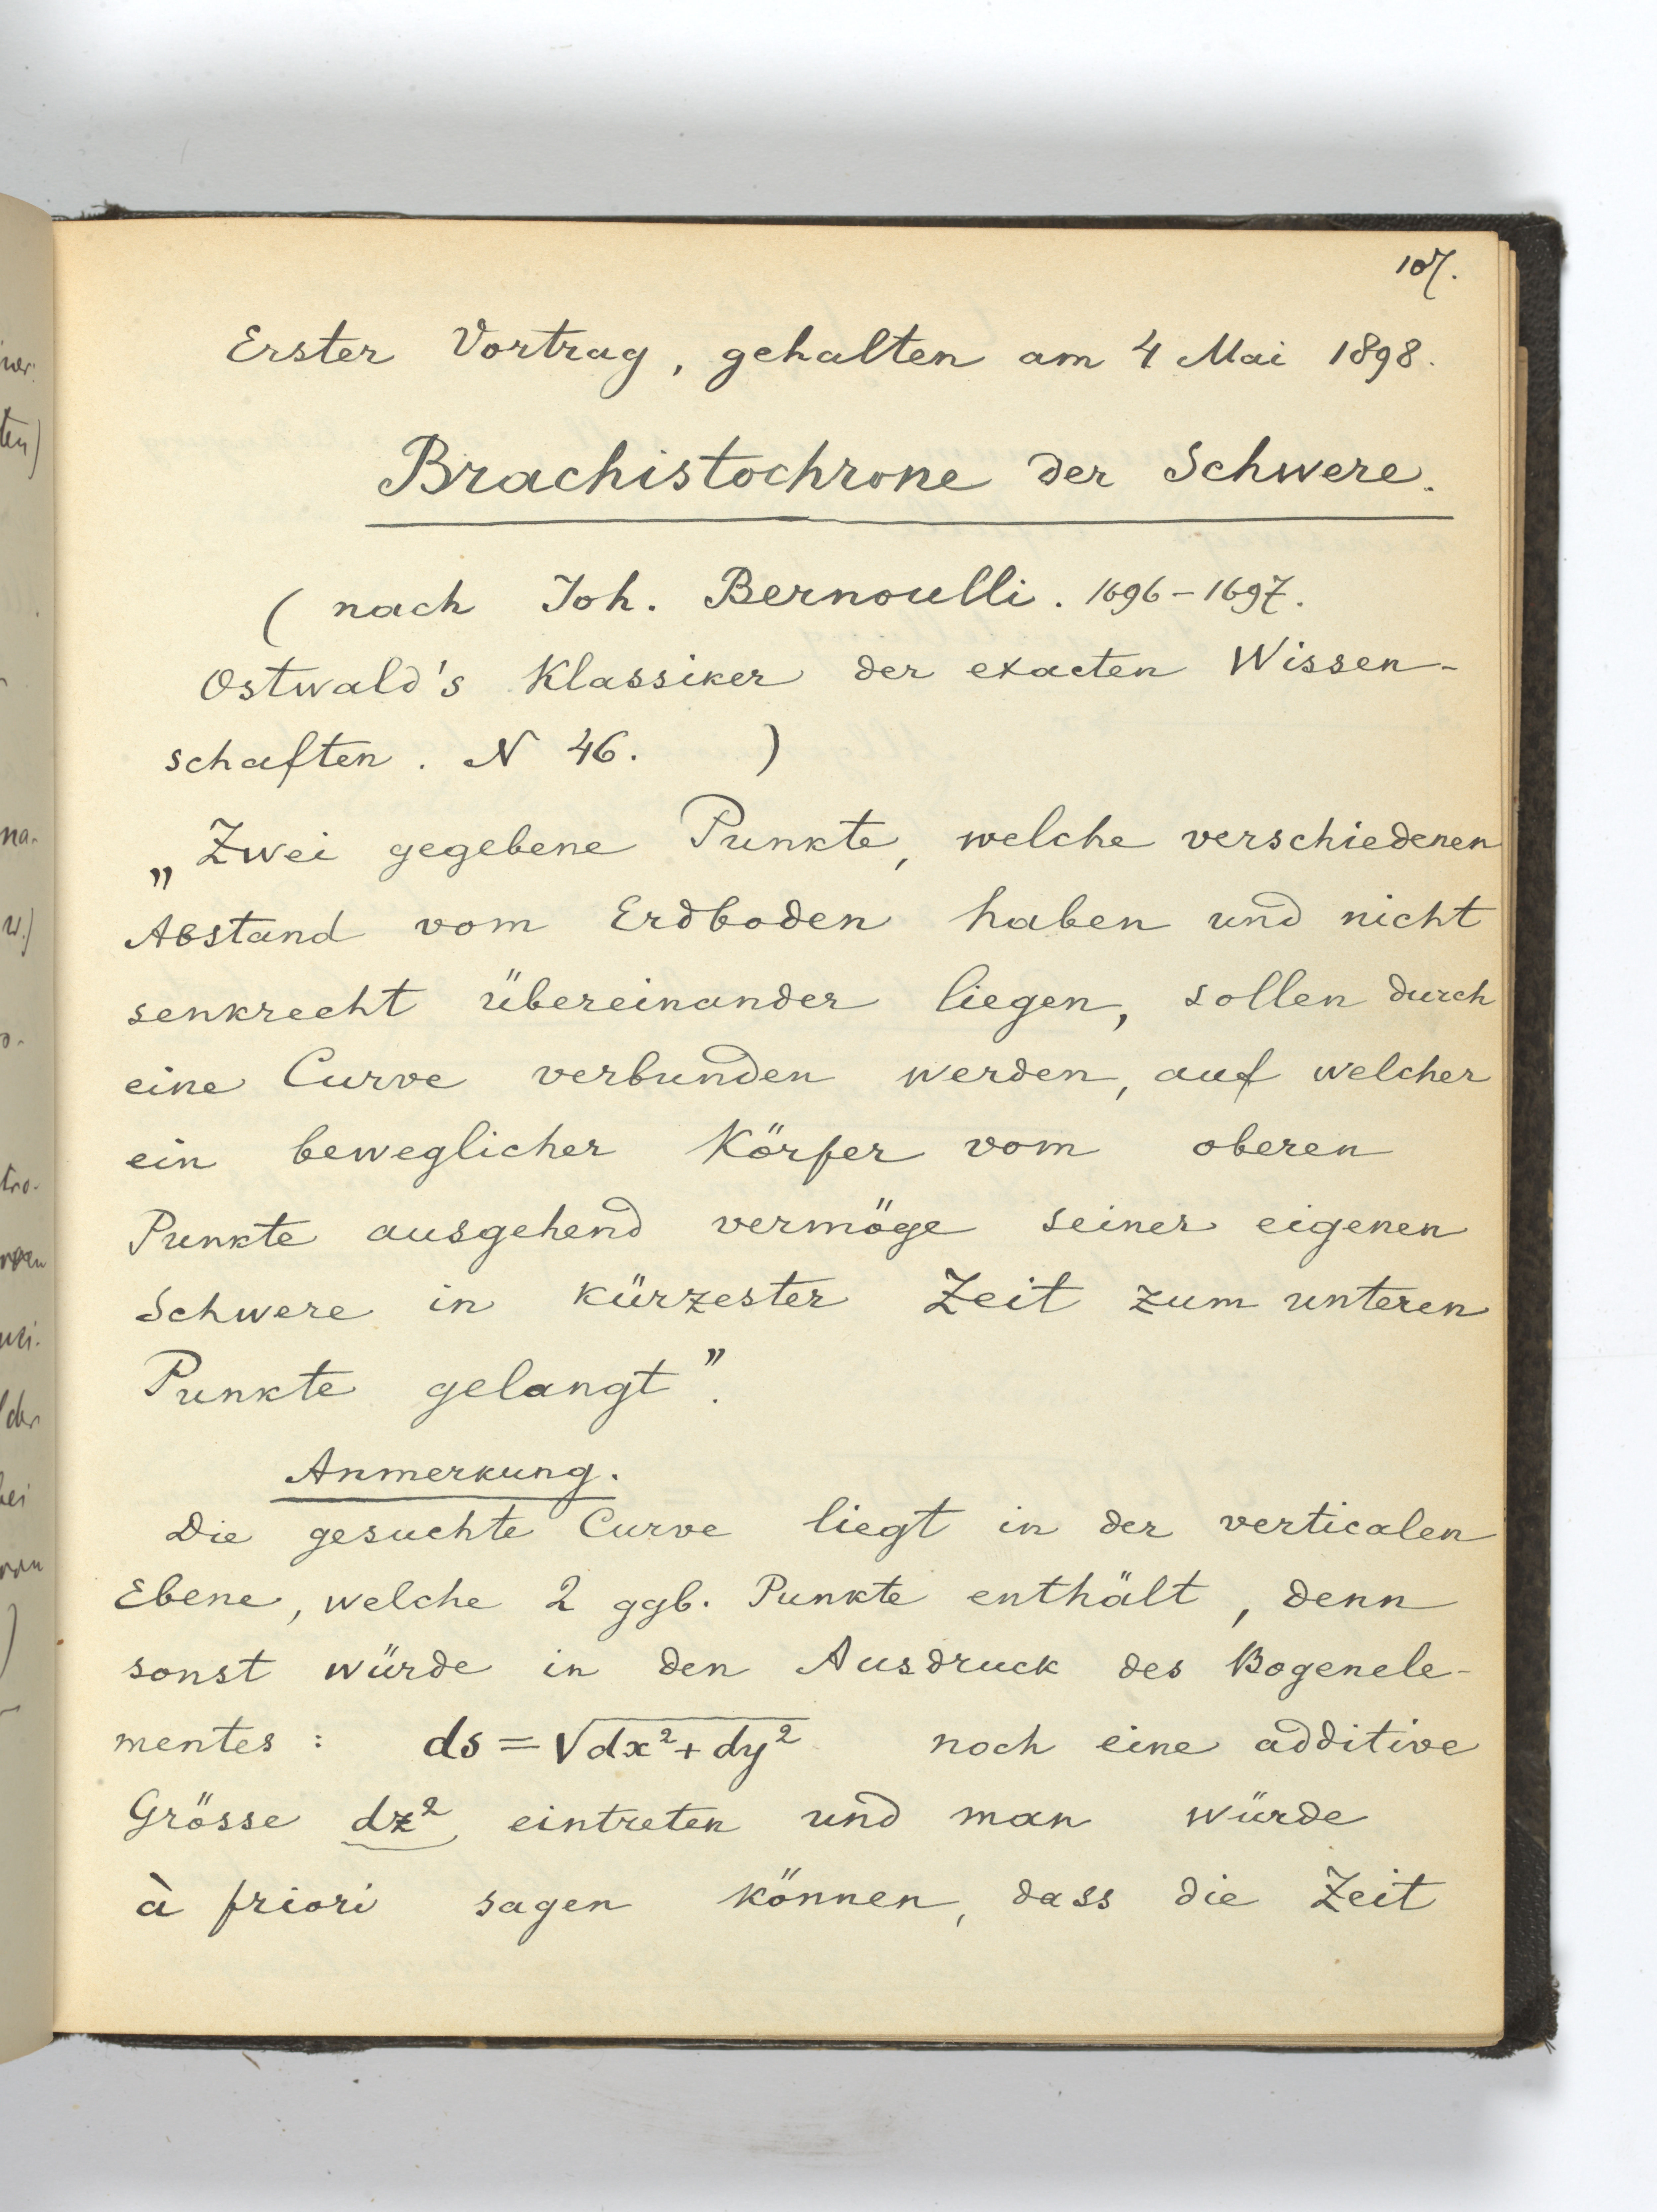 107.
Erster Vortrag, gehalten am 4 Mai 1898.
Brachistochrone der Schwere.
( nach Joh. Bernoulli. 1696-1697.
Ostwald's Klassiker der exacten Wissen-
schaften. N 46. )
„Zwei gegebene Punkte, welche verschiedenen
Abstand vom Erdboden haben und nicht
senkrecht übereinander liegen, sollen durch
eine Curve verbunden werden, auf welcher
ein beweglicher Körper vom oberen
Punkte ausgehend vermöge seiner eigenen
Schwere in kürzester Zeit zum unteren
Punkte gelangt".
Anmerkung.
Die gesuchte Curve liegt in der verticalen
Ebene, welche 2 ggb. Punkte enthält, denn
sonst würde in den Ausdruck des Bogenele-
mentes: ds = √dx²+dy² noch eine additive
Grösse dz² eintreten und man würde
à priori sagen können, dass die Zeit